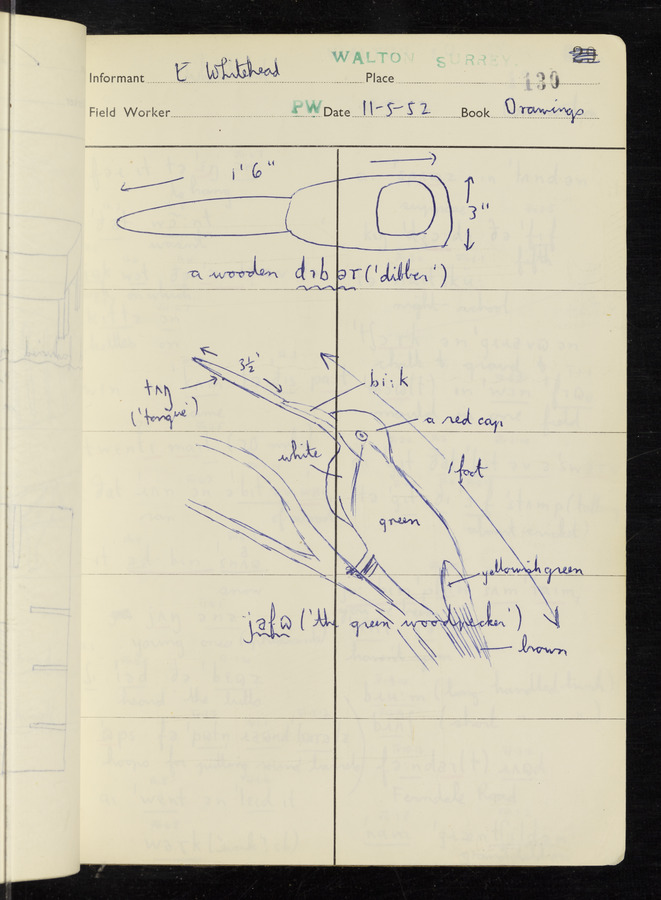 WALTON SURREY.
Informant E Whitehead Place 130
Field Worker PW Date 11-5-52 Book Drawings
1' 6"
3"
a wooden dɪbəɾ ('dibber')
3½'
tʌŋ
('tongue')
bi:k
a red cap
white
1 foot
green
yellowish green
jafω ('the green woodpecker')
brown